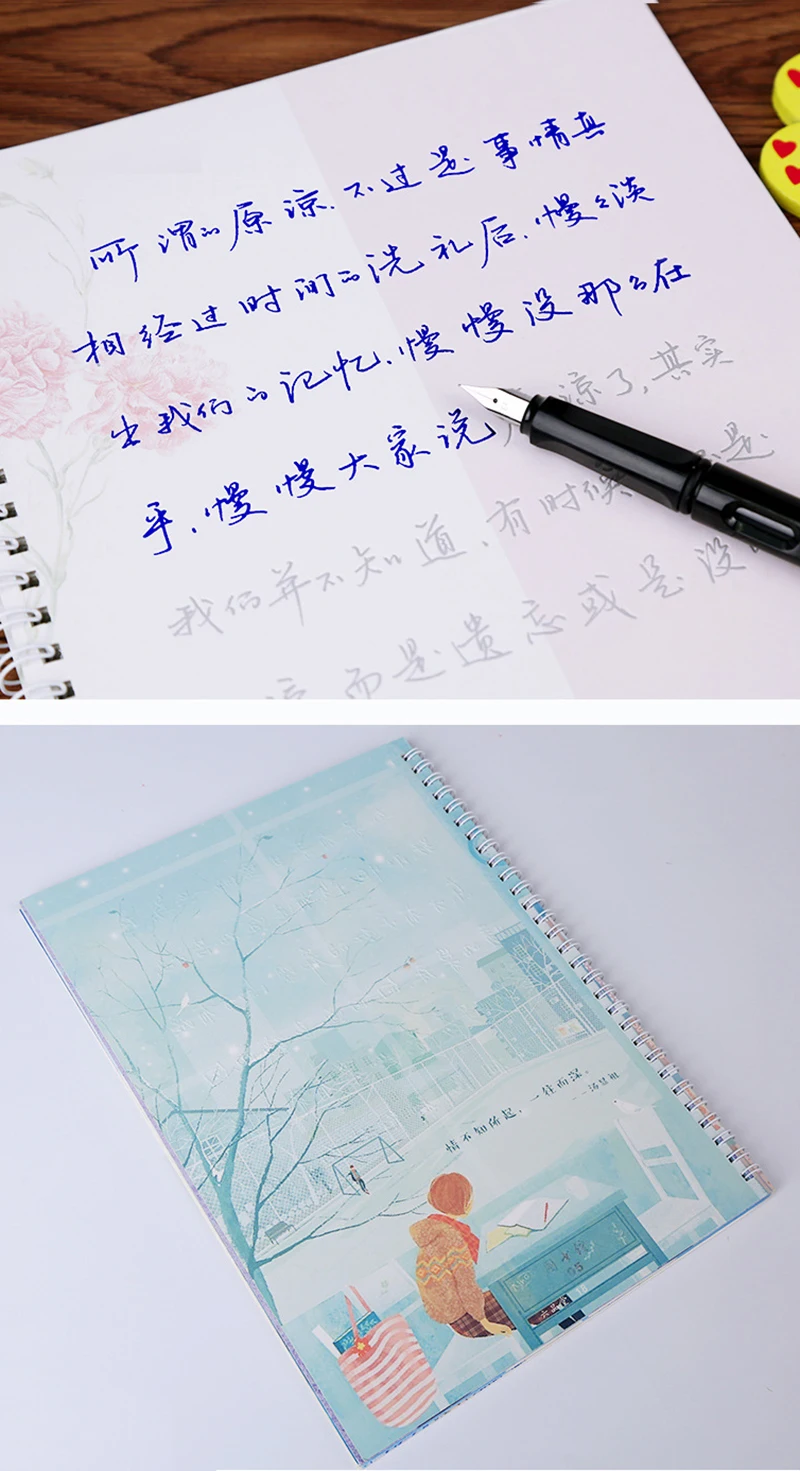 所谓的原凉.不过是事情真
相经过时间的洗礼后.慢慢淡
出我们的记忆.慢慢没那么在
乎.慢慢大家说 凉了,其实
我们并不知道.有时候 是
凉而是遗忘或是没
情不知所起，一往而深。
——汤显祖
图书馆
05